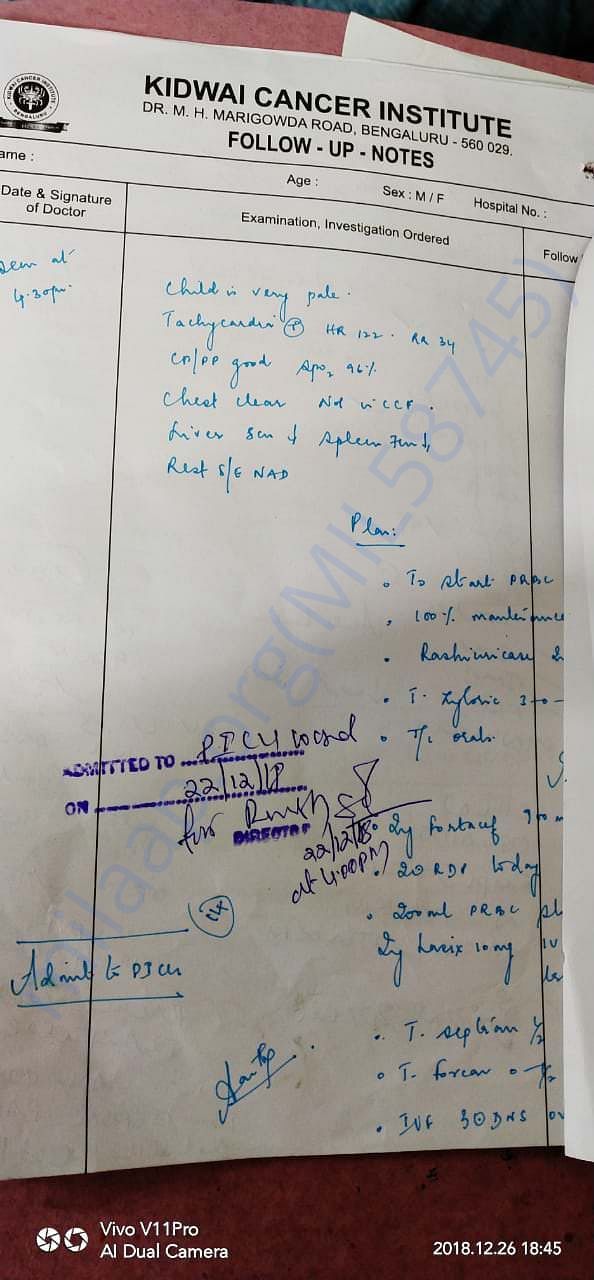 KIDWAI CANCER INSTITUTE
DR. M. H. MARIGOWDA ROAD, BENGALURU - 560 029.
FOLLOW - UP - NOTES
KIDWAI CANCER INSTITUTE
BENGALURU
ame :
Age :
Sex : M / F
Hospital No. :
Date & Signature
of Doctor
Examination, Investigation Ordered
Follow
seen at
4.30pm.
Child is very pale.
Tachycardia HR 122. RR 34
CP/PP good SpO2 96%
Chest clear Not in CCF.
Liver Spleen
Rest S/E NAD
Plan:
• To start PRBC
• 100% maintenance
• Rasburicase
• T. Zyloric 3-0-
• T/t orals.
ADMITTED TO PICU ward
ON 22/12/18
for
DIRECTOR
22/12/18
at 4.00PM
Fortacef
• 20 RDP today
• 200ml PRBC
Lasix 10mg IV
Admit to PICU
• T. septran 1/2
• T. forcan 0-
• IVF DNS
milaap.org(MIL_58745)
Vivo V11Pro
AI Dual Camera
2018.12.26 18:45